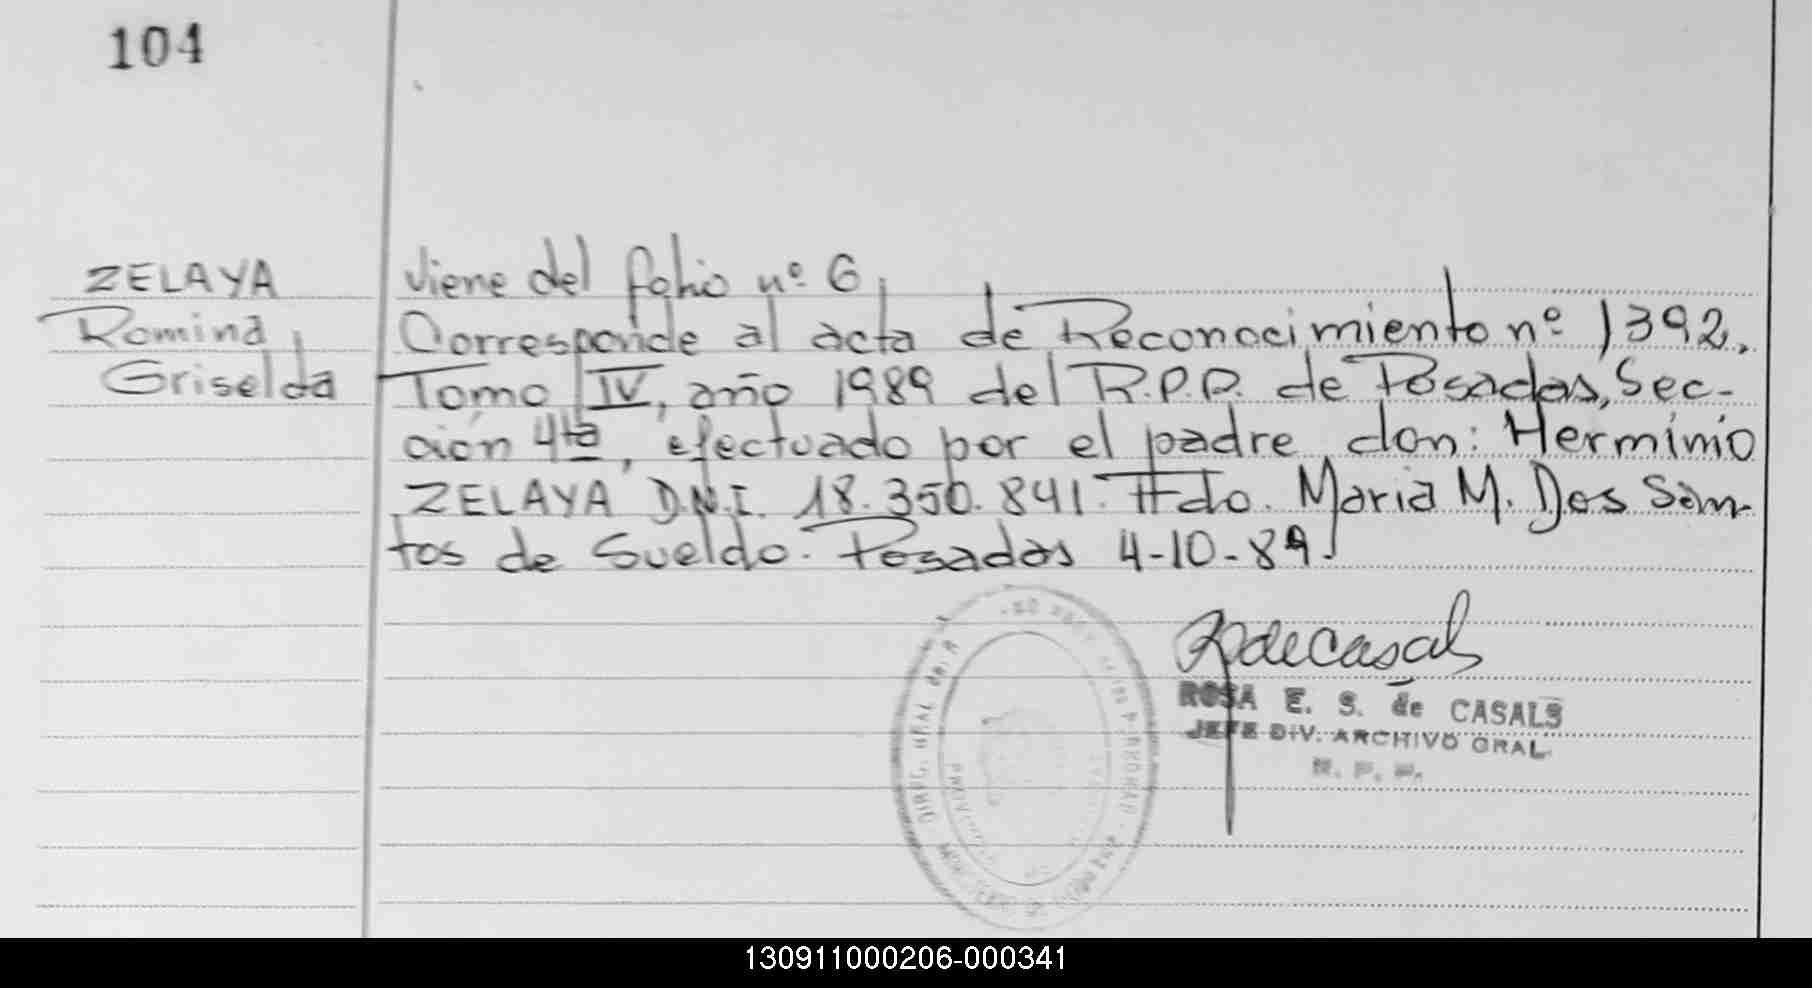 104
ZELAYA
Romina
Griselda
viene del folio nº 6
Corresponde al acta de Reconocimiento nº 1392,
Tomo IV, año 1989 del R.P.P. de Posadas, Sec-
ción 4ta, efectuado por el padre don: Herminio
ZELAYA D.N.I. 18.350.841. Fdo. Maria M. Dos San-
tos de Sueldo. Posadas 4-10-89.
RdeCasals
ROSA E. S. de CASALS
JEFE DIV. ARCHIVO GRAL.
R. P. P.
DIREC. GRAL del R
PROVINCIA
130911000206-000341